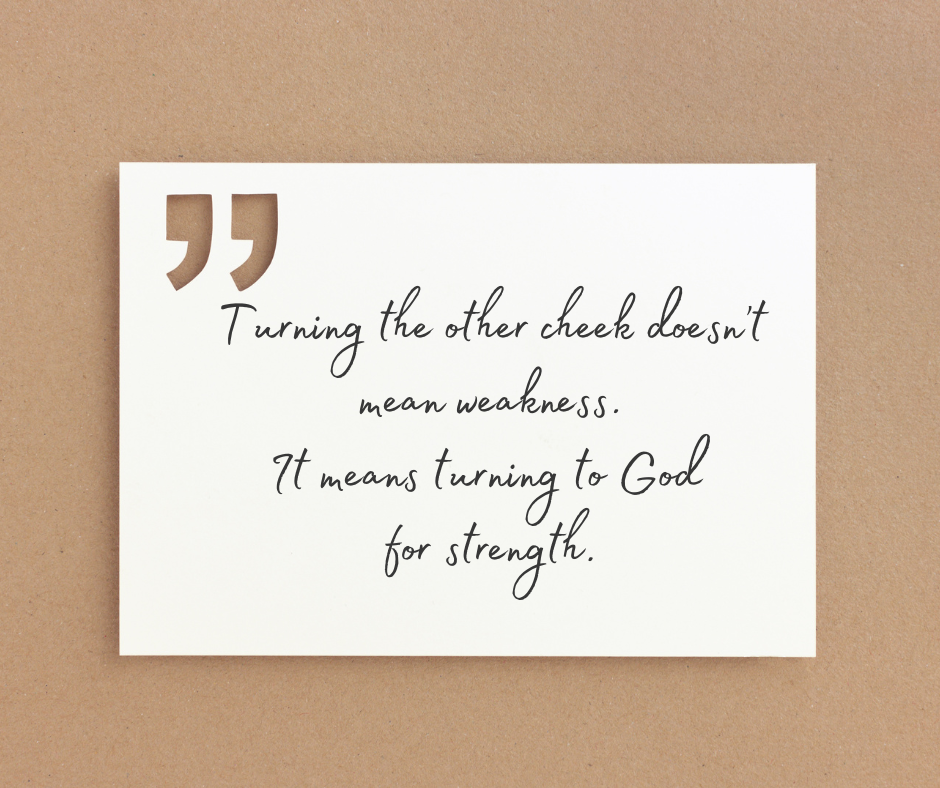 ”
Turning the other cheek doesn't
mean weakness.
It means turning to God
for strength.